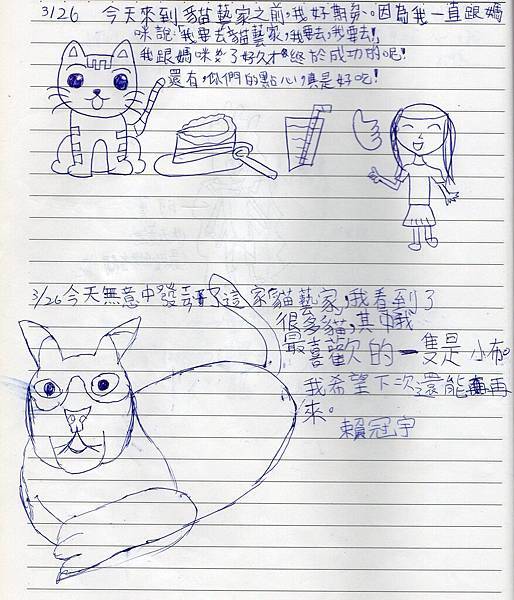 3/26 今天來到貓藝家之前,我好期待。因為我一直跟媽
咪說:我要去貓藝家,我要去,我要去!
我跟媽咪ㄌㄨ了好久才終於成功的呢!
還有,你們的點心真是好吃!
3/26今天無意中發現了這家貓藝家,我看到了
很多貓,其中我
最喜歡的一隻是小布。
我希望下次還能再
來。
賴冠宇